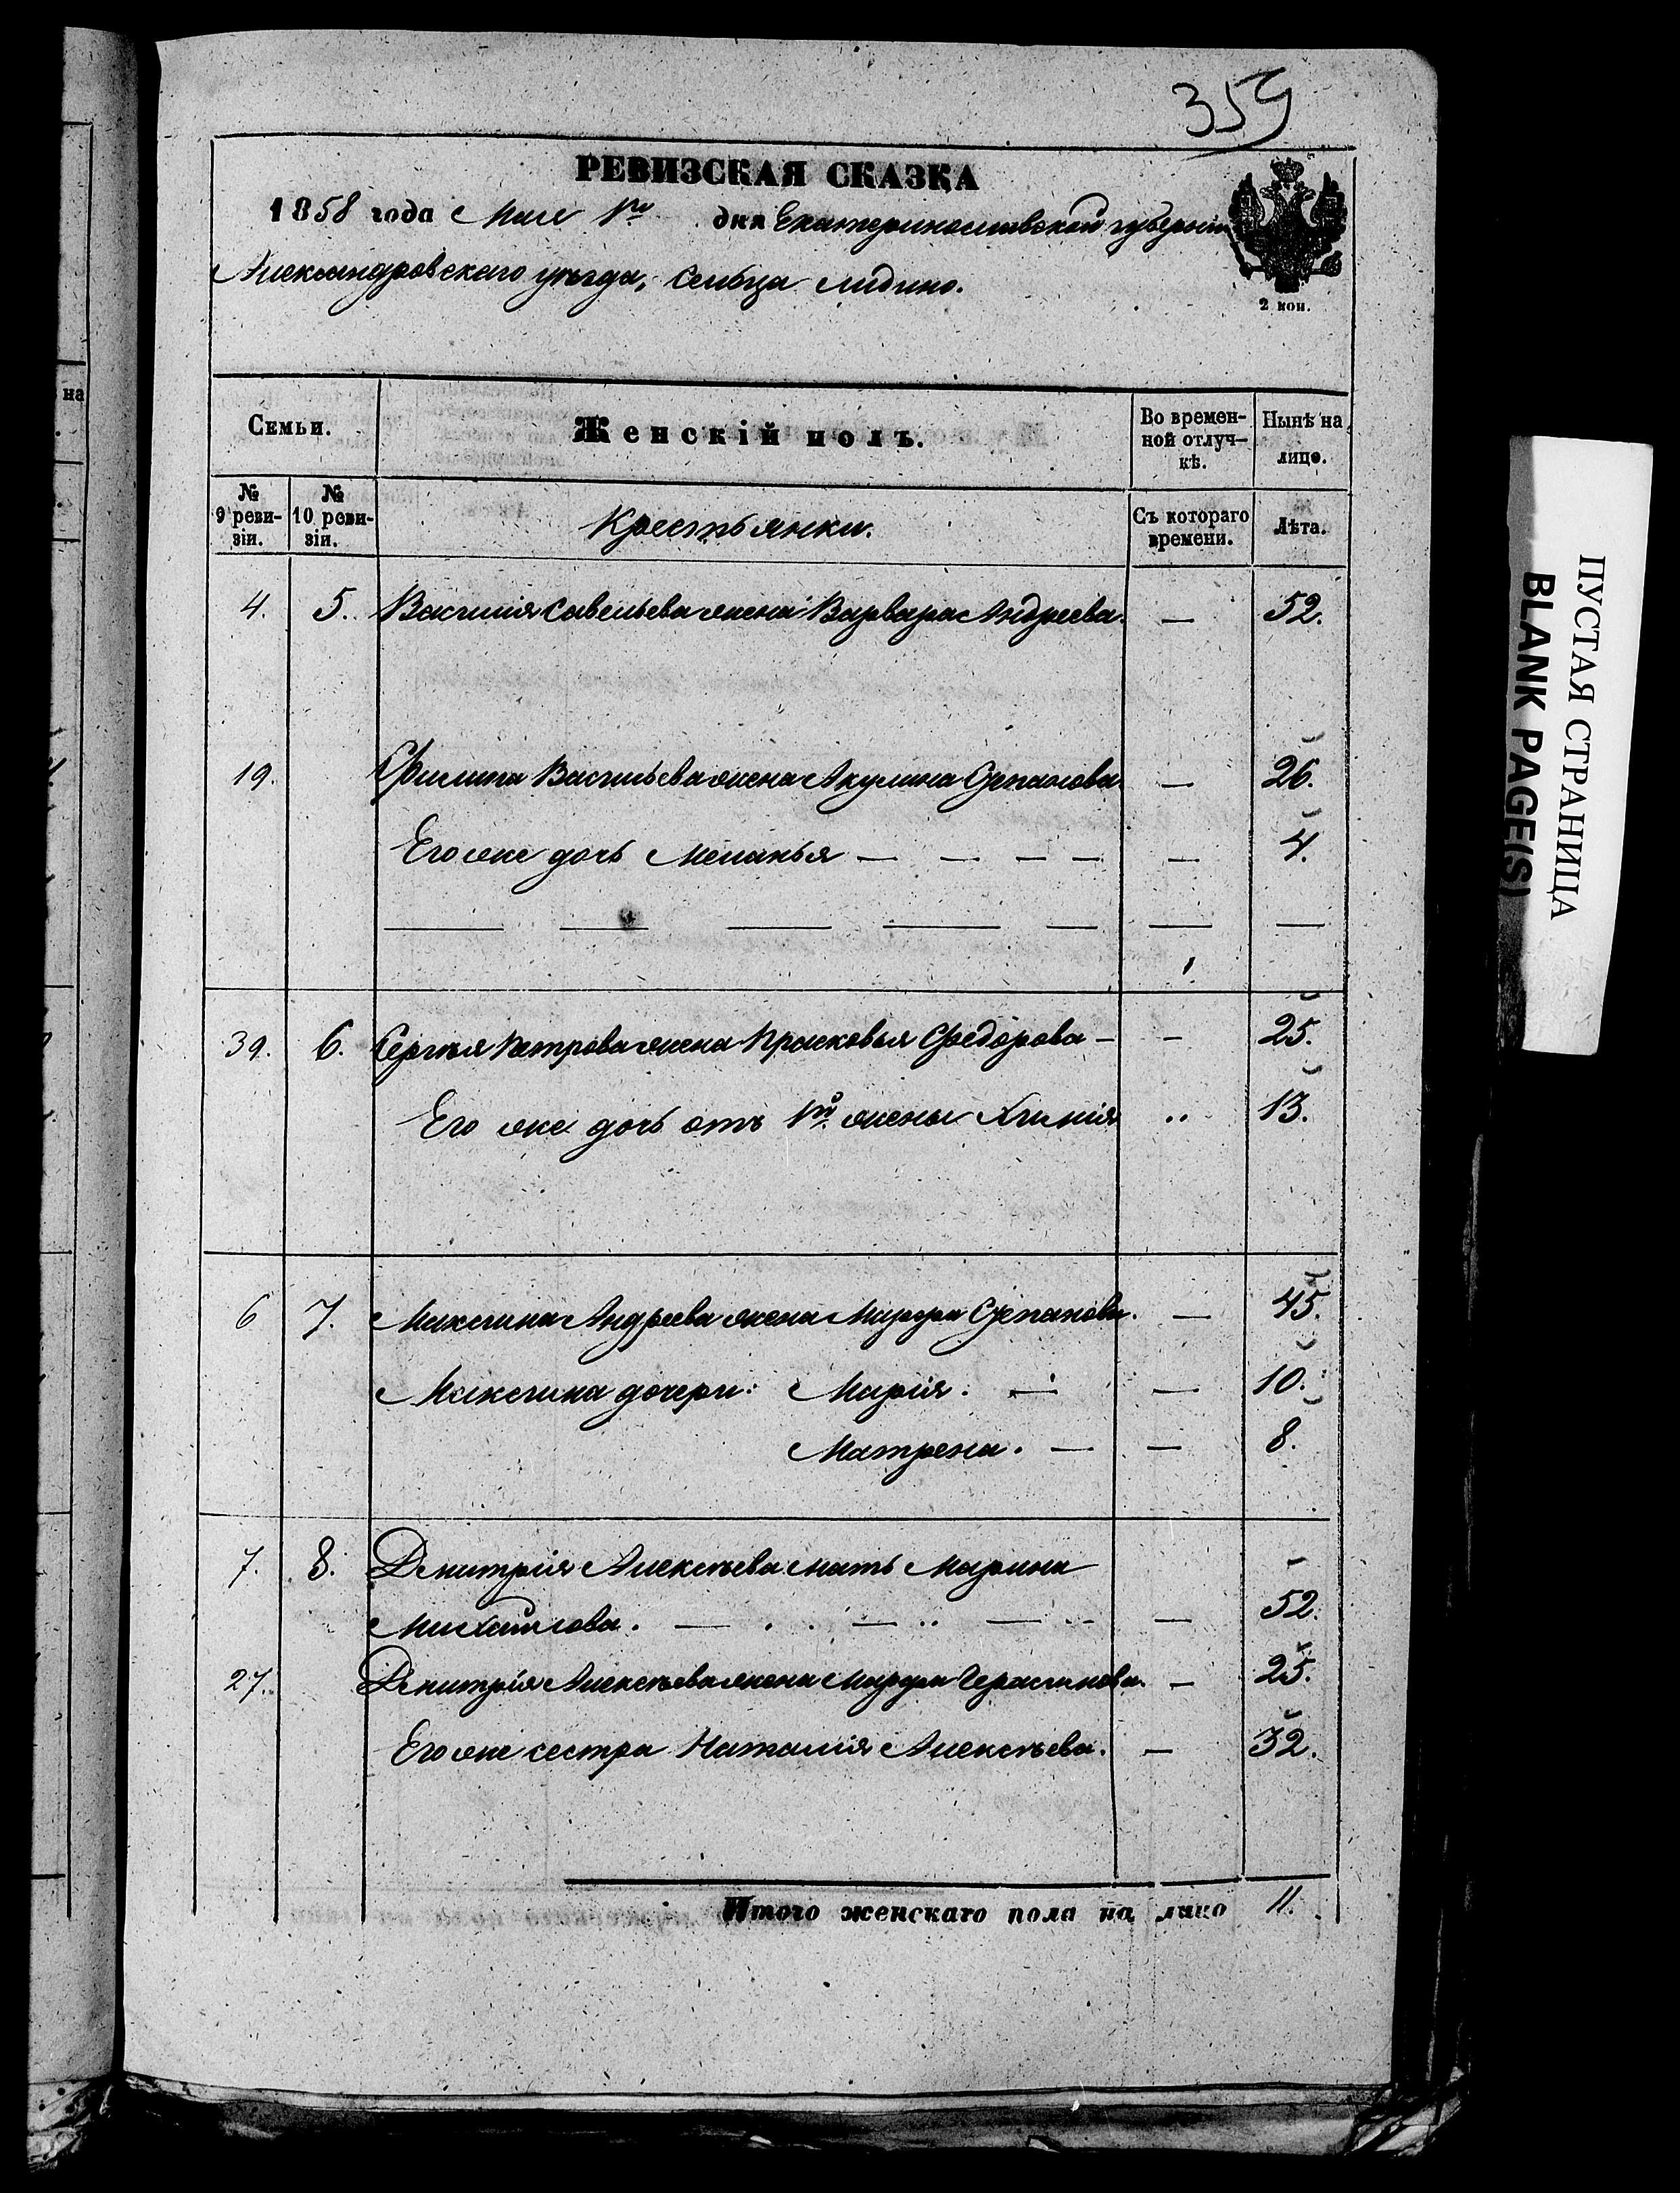 359
РЕВИЗСКАЯ СКАЗКА
1858 года Мая 1го дня Екатеринославской губернии
Александровскаго уѣзда, сельца Лидино.
2 коп.
на
Семьи. Женскій полъ. Во времен-ной отлуч-кѣ. Нынѣ на лицо.
№ 9 реви-зіи. № 10 реви-зіи. Крестьянки. Съ котораго времени. Лѣта.
4. 5. Василія Савельева жена Варвара Андреева. — 52.
19. Филипа Васильева жена Акулина Степанова. — 26.
Его же дочь Меланья — — — — — 4.
39. 6. Сергѣя Петрова жена Прасковья Федорова — — 25.
Его же дочь отъ 1й жены 13.
6 7. Максима Андреева жена Марфа Степанова. — 45.
Максима дочери: Марія. — — 10.
Матрена. — — 8.
7. 8. Дмитрія Алексѣева мать Марина
Михайлова. — — — — 52.
27. Дмитрія Алексѣева жена Марфа Герасимова. — 25.
Его же сестра Наталія Алексѣева. — 32.
Итого женскаго пола на лицо 11.
ПУСТАЯ СТРАНИЦА
BLANK PAGE(S)